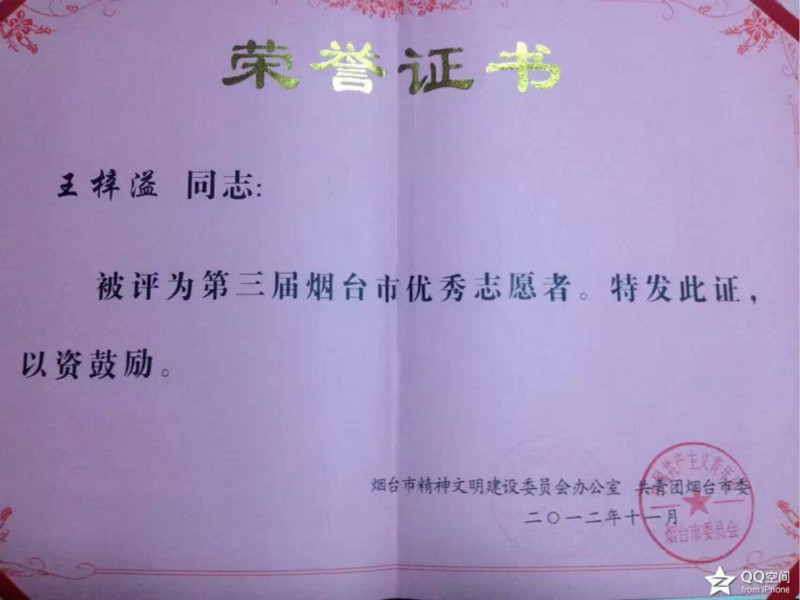 荣誉证书
王梓溢 同志:
被评为第三届烟台市优秀志愿者。特发此证,
以资鼓励。
烟台市精神文明建设委员会办公室 共青团烟台市委
二〇一二年十一月
共产主义青年
烟台市委员会
QQ空间
from iPhone